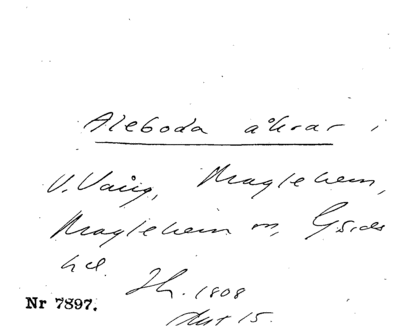 Aleboda åkrar i
V. Vång, Maglehem,
Maglehem sn, Gärds
hd. Jh. 1808
Akt 15.
Nr 7897.